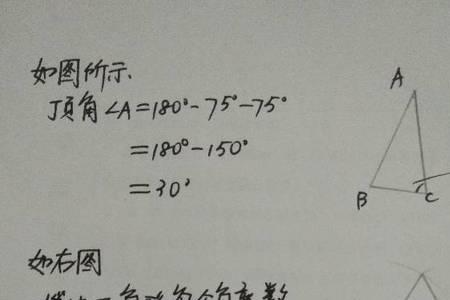 如图所示.
顶角∠A=180°-75°-75°
=180°-150°
=30°
A
B
C
如右图